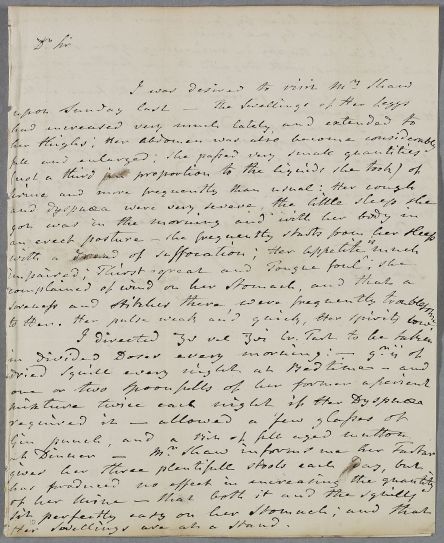 Dr Sir
I was desired to visit Mrs Shaw
upon Sunday last — the Swellings of Her Leggs
had encreased very much lately, and extended to
her thighs; Her Abdomen was also become considerably
full and enlarged; she passed very small quantities
just a third proportion to the liquids she took of
Urine and more frequently than usual; Her cough
and dyspnœa were very severe, the little sleep she
got was in the morning and with her body in
an erect posture — she frequently starts from her sleep
with a dread of suffocation; Her appetite much
impaired; Thirst great and Tongue foul; she
complained of wind on her Stomach, and that a
soreness and stitches there were frequently troublesome
to Her. Her pulse weak and quick, Her spirits low.
I directed ʒv vel ʒvi Cr. Tart to be taken
in Divided Doses every morning — grs ij of
dried Squill every night at Bedtime — and
one or two spoonfulls of her former aperient
mixture twice each night if Her Dyspnœa
required it — allowed a few glasses of
Gin punch, and a bit of full aged mutton
at Dinner — Mrs Shaw informs me her Tartar
gives her three plentifull stools each day, but
has produced no effect in encreasing the quantity
of her Urine — that both it and the Squills
sit perfectly easy on her Stomach; and that
Her Swellings are at a stand.